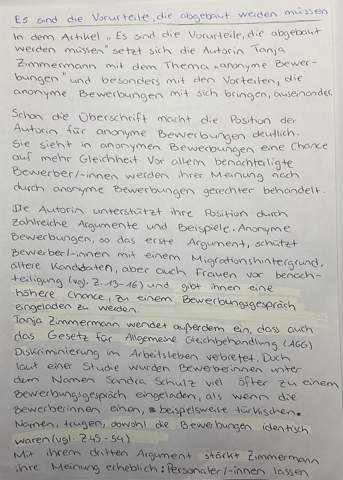 Es sind die Vorurteile, die abgebaut werden müssen
In dem Artikel „Es sind die Vorurteile, die abgebaut
werden müssen" setzt sich die Autorin Tanja
Zimmermann mit dem Thema „anonyme Bewer-
bungen" und besonders mit den Vorteilen, die
anonyme Bewerbungen mit sich bringen, auseinander.
Schon die Überschrift macht die Position der
Autorin für anonyme Bewerbungen deutlich.
Sie sieht in anonymen Bewerbungen eine Chance
auf mehr Gleichheit. Vor allem benachteiligte
Bewerber/-innen werden ihrer Meinung nach
durch anonyme Bewerbungen gerechter behandelt.
Die Autorin unterstützt ihre Position durch
zahlreiche Argumente und Beispiele. Anonyme
Bewerbungen, so das erste Argument, schützt
Bewerber/-innen mit einem Migrationshintergrund,
ältere Kandidaten, aber auch Frauen vor benach-
teiligung (vgl. Z. 13-16) und gibt ihnen eine
höhere Chance, zu einem Bewerbungsgespräch
eingeladen zu werden.
Tanja Zimmermann wendet außerdem ein, dass auch
das Gesetz für Allgemeine Gleichbehandlung (AGG)
Diskriminierung im Arbeitsleben verbietet. Doch
laut einer Studie wurden Bewerberinnen unter
dem Namen Sandra Schulz viel öfter zu einem
Bewerbungsgespräch eingeladen, als wenn die
Bewerberinnen einen, beispielsweise türkischen
Namen, trugen, obwohl die Bewerbungen identisch
waren (vgl. Z 45-54)
Mit ihrem dritten Argument stärkt Zimmermann
ihre Meinung erheblich: Personaler/-innen lassen